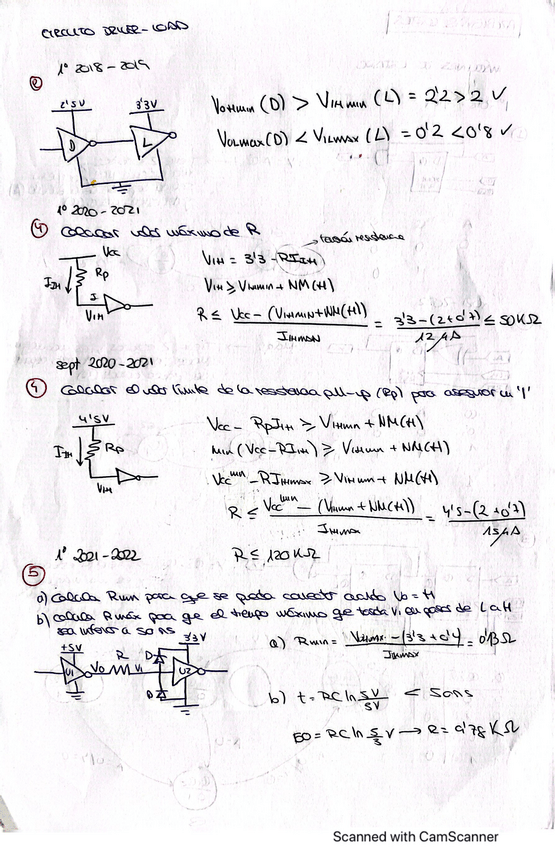 CIRCUITO DRIVER-LOAD
1º 2018-2019
②
2'5V 3'3V
VOHmin (D) > VIHmin (L) = 2'2 > 2 ✓
D L
VOLmax (D) < VILmax (L) = 0'2 < 0'8 ✓
1º 2020-2021
④ Calcular valor máximo de R
Vcc
IIH Rp
VIH
VIH = 3'3 - RIIH → tensión resistencia
VIH ≥ VIHmin + NM(H)
R ≤ Vcc - (VIHMIN + NM(H)) / IIHMAX = 3'3 - (2+0'7) / 12µA ≤ 50KΩ
sept 2020-2021
④ Calcular el valor límite de la resistencia pull-up (Rp) para asegurar un '1'
4'5V
IIH Rp
VIH
Vcc - RpIIH ≥ VIHmin + NM(H)
min (Vcc - RIIH) ≥ VIHmin + NM(H)
Vcc min - RIIHmax ≥ VIHmin + NM(H)
R ≤ Vcc min - (VIHmin + NM(H)) / IIHmax = 4'5 - (2+0'7) / 15µA
R ≤ 120KΩ
1º 2021-2022
⑤
a) Calcula Rmin para que se pueda conectar cuando Vo = H
b) calcula Rmáx para que el tiempo máximo que tarda Vi en pasar de L a H
sea inferior a 50ns
+5V 3'3V
U1 Vo R Vi D D U2
a) Rmin = VOHmax - (3'3 + 0'4) / IIHmax = 0'13Ω
b) t = RC ln 5V/3V < 50ns
50 = RC ln 5/3 V → R = 0'78 KΩ
Scanned with CamScanner